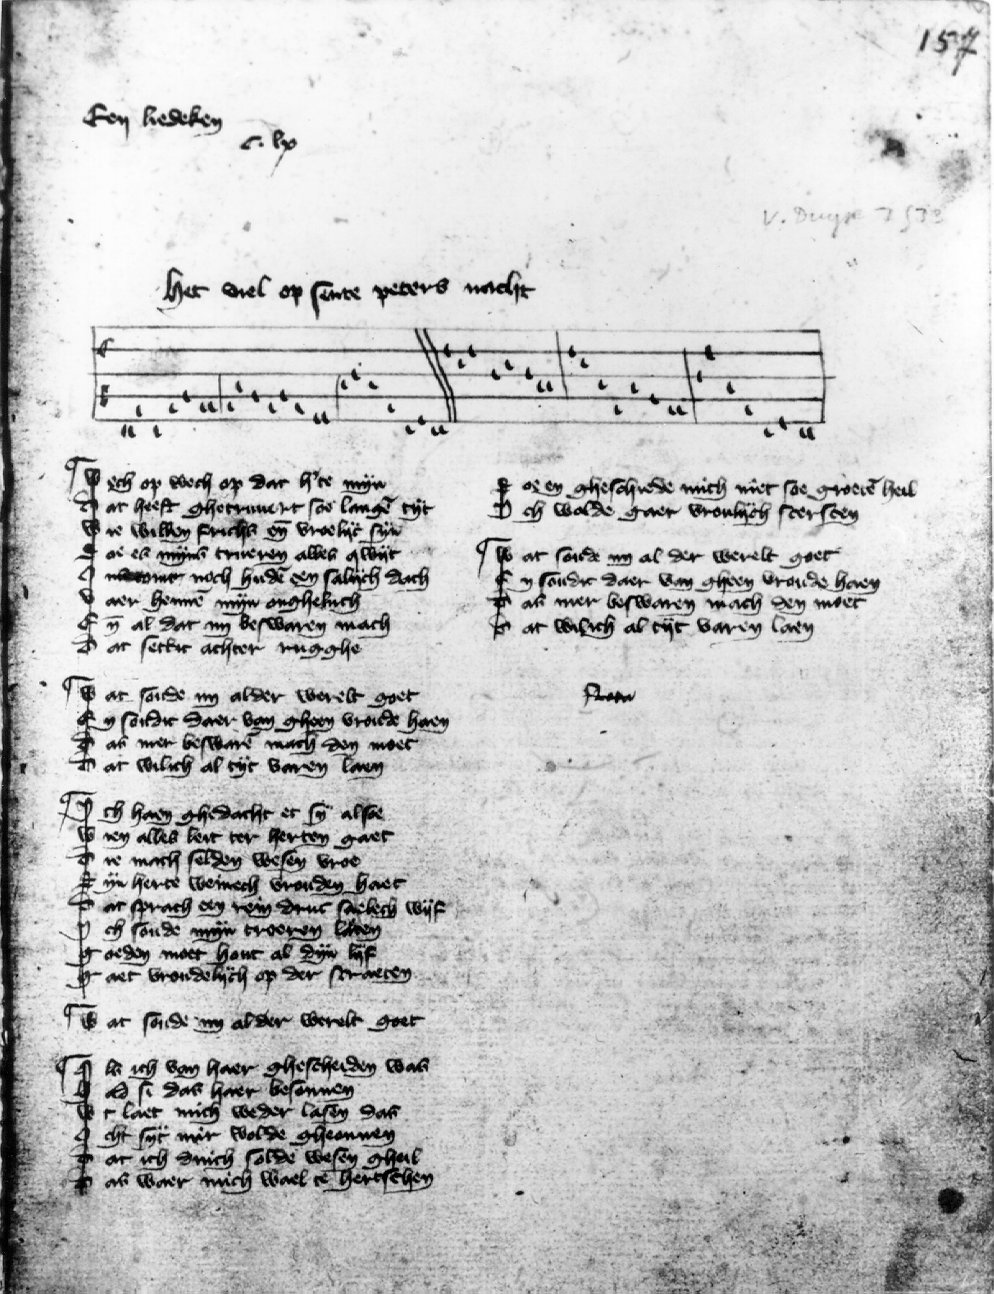 157
Een liedeken
c. lx
V. Duyse
Het viel op sente peters nacht
Wech op wech op dat hte mijn
Dat heeft ghetruuert soe langē tijt
Wie willen frichs eñ vroelijc sijn
Hoe es mijns truerens alles qwijt
noch hudē een salich dach
Daer hennē mijn ongheluch
Eñ al dat mj beswaren mach
Dat settic achter rugghe
Wat soude mj al der werelt goet
En soudic daer van gheen vroude haen
Das mer beswarē mach den moet
Dat wilich al tijt varen laen
Ich haen ghedacht et sy alsoe
Wien alles leit ter herten gaet
Die mach selden wesen vroe
Mijn herte weinech vrouden haet
Dat sprach een rein druc saelech wijf
Ich soude mijn troeren laten
Goeden moet hout al dijn lijf
Gaet vroudelijch op der straeten
Wat soude mj al der werelt goet
Als ich van haer ghescheiden was
Ad si das haer besonnen
t laet mich weder lasen das
cht sijt mir wolde gheonnen
Dat ich druch solde wesen gheil
Das waer mich wael te hertschen
oe en gheschiede mich niet soe groetē heil
Ich wolde gaer vroulijch sterften
Wat soude mj al der werelt goet
En soudic daer van gheen vroude haen
Das mer beswaren mach den moet
Dat wilich al tijt varen laen